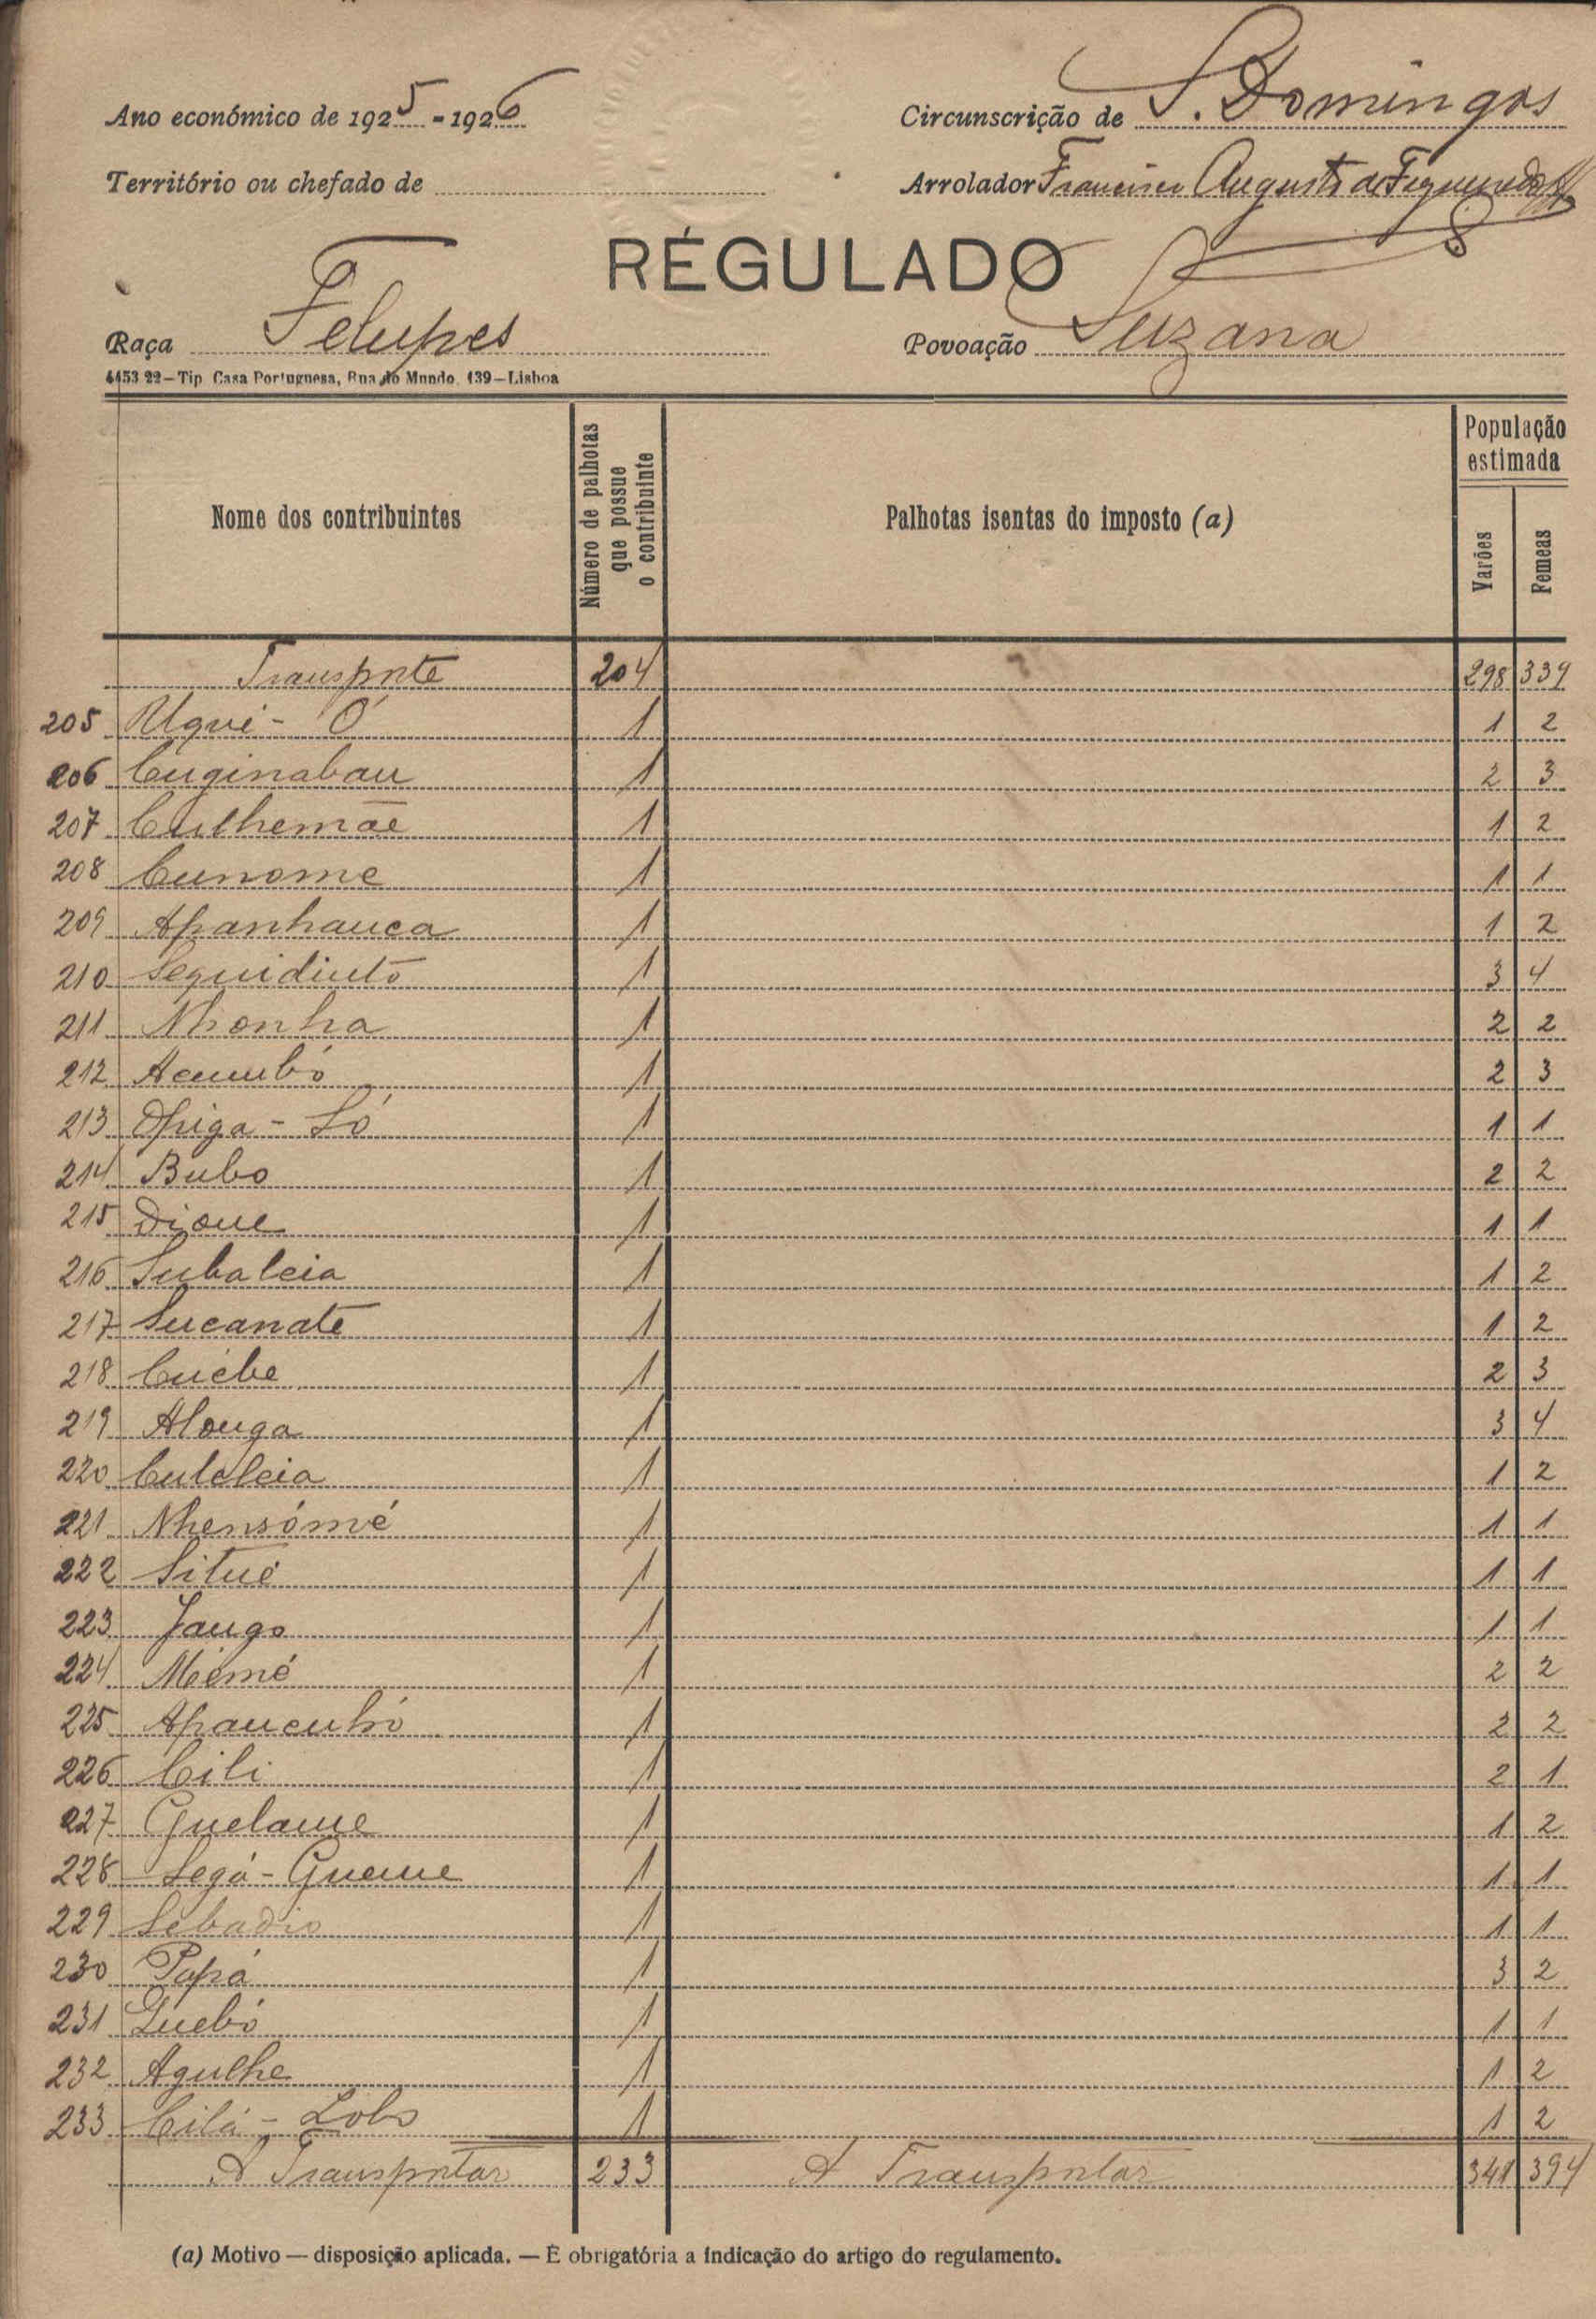 Ano económico de 1925-1926
Circunscrição de S. Domingos
Território ou chefado de
Arrolador Francisco Augusto de Figueiredo
RÉGULADO
Raça Felupes
Povoação Suzana
4453 22—Tip. Casa Portuguesa, Rua do Mundo, 139—Lisboa
Nome dos contribuintes
Número de palhotas que possue o contribuinte
Palhotas isentas do imposto (a)
População estimada
Varões
Femeas
Transporte 204 298 339
205 Uqui - Ó 1 1 2
206 Cuginabau 1 2 3
207 Culhemãe 1 1 2
208 Cunome 1 1 1
209 Apanhauca 1 1 2
210 Seguidiutó 1 3 4
211 Nhonha 1 2 2
212 Acumbó 1 2 3
213 Opiga - Só 1 1 1
214 Bubo 1 2 2
215 Dioue 1 1 1
216 Subaleia 1 1 2
217 Sucanate 1 1 2
218 Cuébe 1 2 3
219 Alouga 1 3 4
220 Culaleia 1 1 2
221 Nhensómé 1 1 1
222 Situé 1 1 1
223 Jaugo 1 1 1
224 Mémé 1 2 2
225 Apaucuhó 1 2 2
226 Cili 1 2 1
227 Guelaue 1 1 2
228 Segá - Gueue 1 1 1
229 Sebadio 1 1 1
230 Papá 1 3 2
231 Guebó 1 1 1
232 Agulhe 1 1 2
233 Cilá - Lobo 1 1 2
A Transportar 233 A Transportar 341 394
(a) Motivo — disposição aplicada. — É obrigatória a indicação do artigo do regulamento.